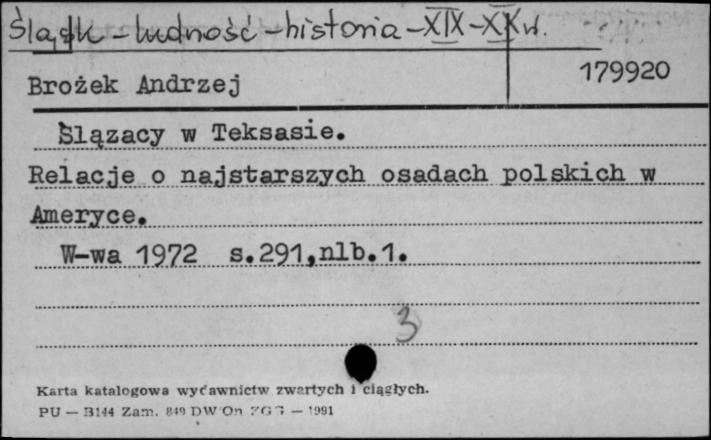 Śląsk - ludność - historia - XIX - XX w.
Brożek Andrzej
179920
Ślązacy w Teksasie.
Relacje o najstarszych osadach polskich w
Ameryce.
W-wa 1972 s.291,nlb.1.
3
Karta katalogowa wydawnictw zwartych i ciągłych.
PU — B144 Zam. 849 DW On ZGG — 1991